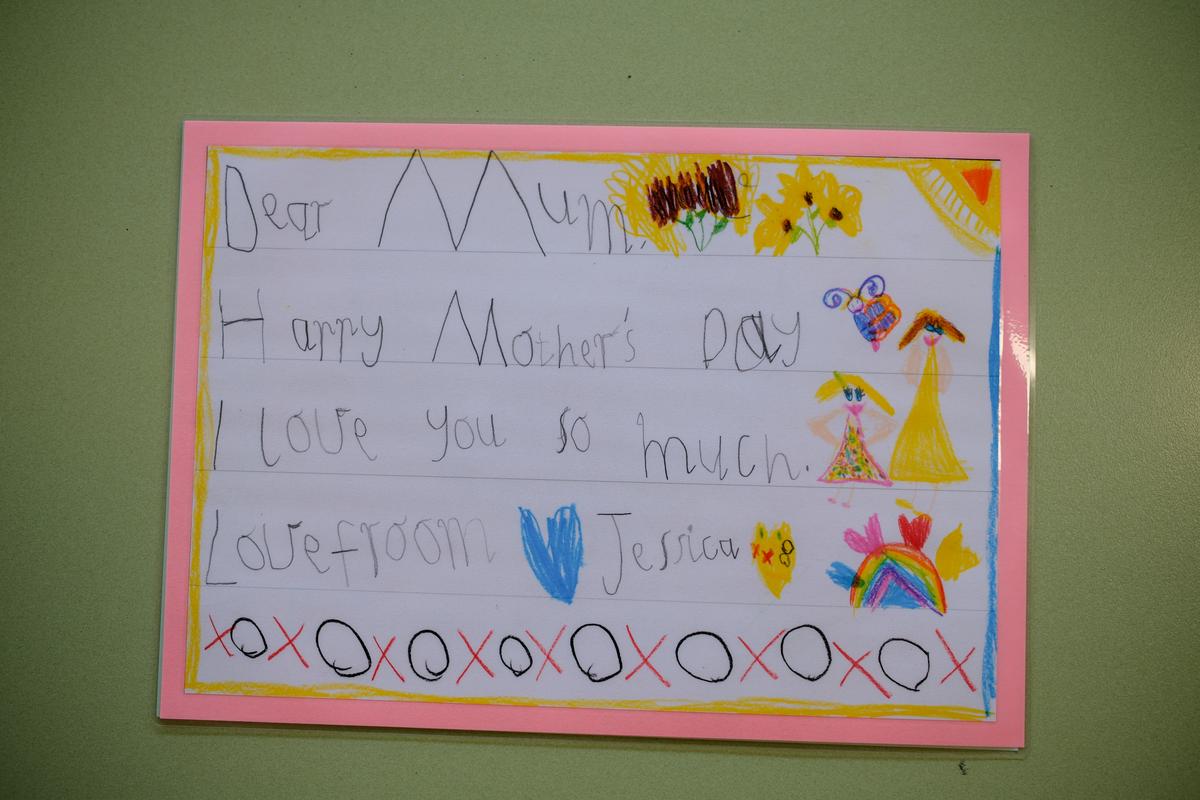 Dear Mum.
Happy Mother's Day
I love you so much.
Lovefroom Jessica
XOXOXOXOXOXOXOXOX